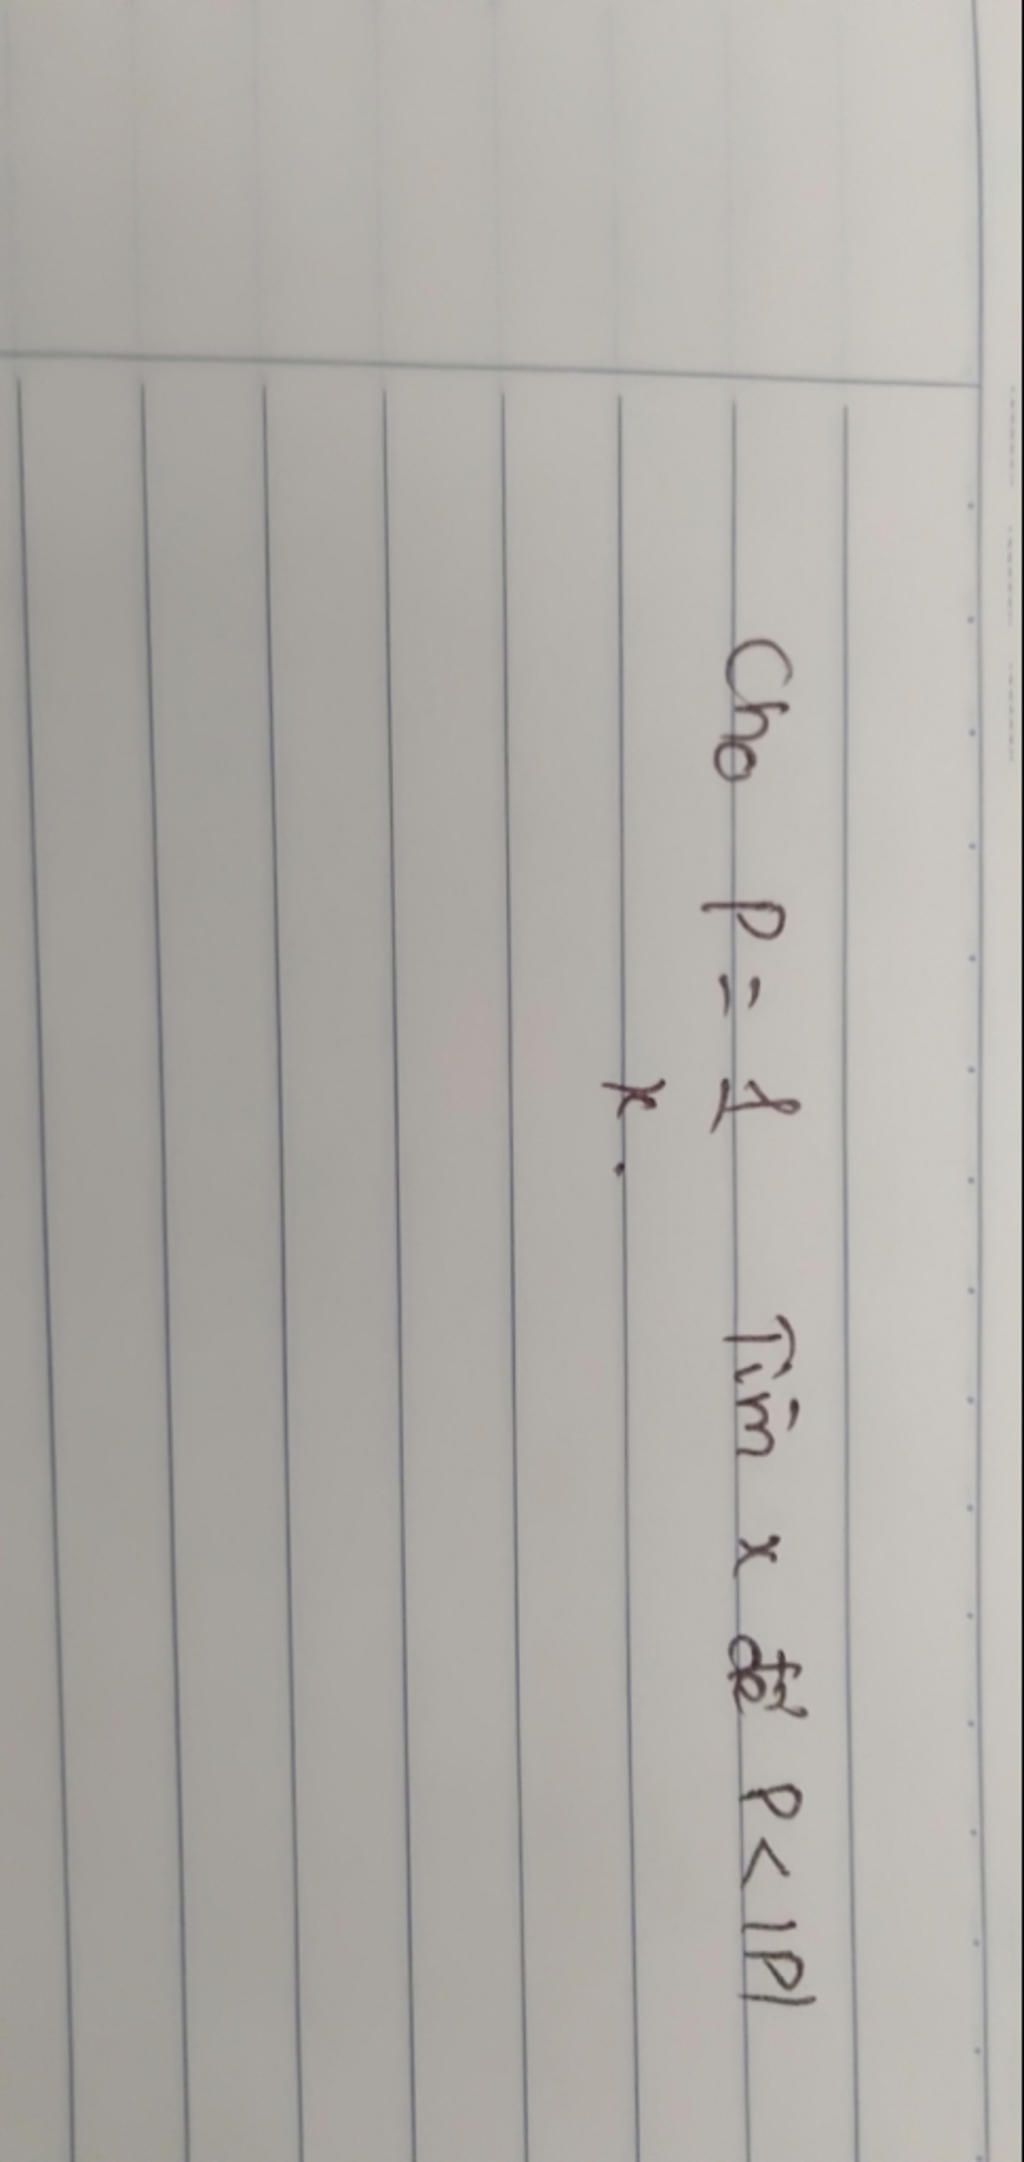 Cho P = 1 Tìm x để P < |P|
x.